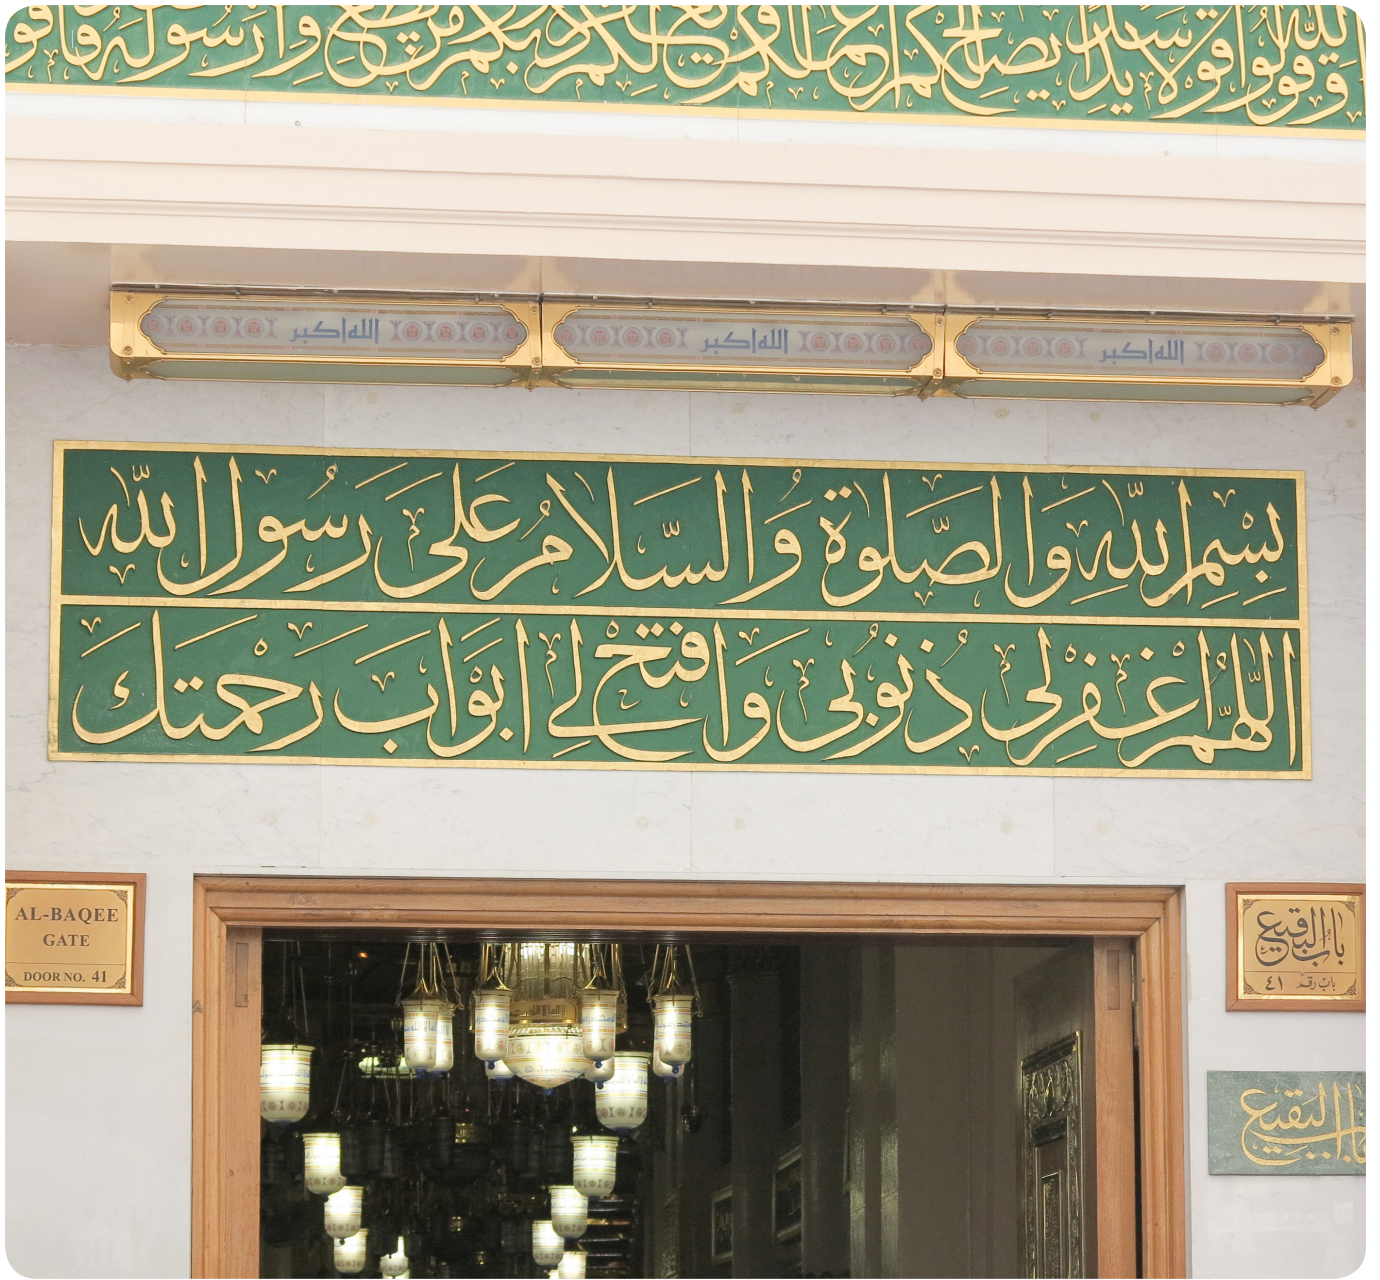 وقولوا قولا سديدا يصلح لكم اعمالكم ويغفر لكم ذنوبكم ومن يطع الله ورسوله
الله اكبر
الله اكبر
الله اكبر
بِسْمِ اللهِ وَالصَّلوة وَالسَّلامُ عَلى رَسُول الله
اللّهُمَّ اغْفِرْلى ذُنوُبى وَافْتَحْ لى ابْوَابَ رَحْمَتكَ
باب البقيع
باب رقم ٤١
AL-BAQEE
GATE
DOOR NO. 41
باب البقيع